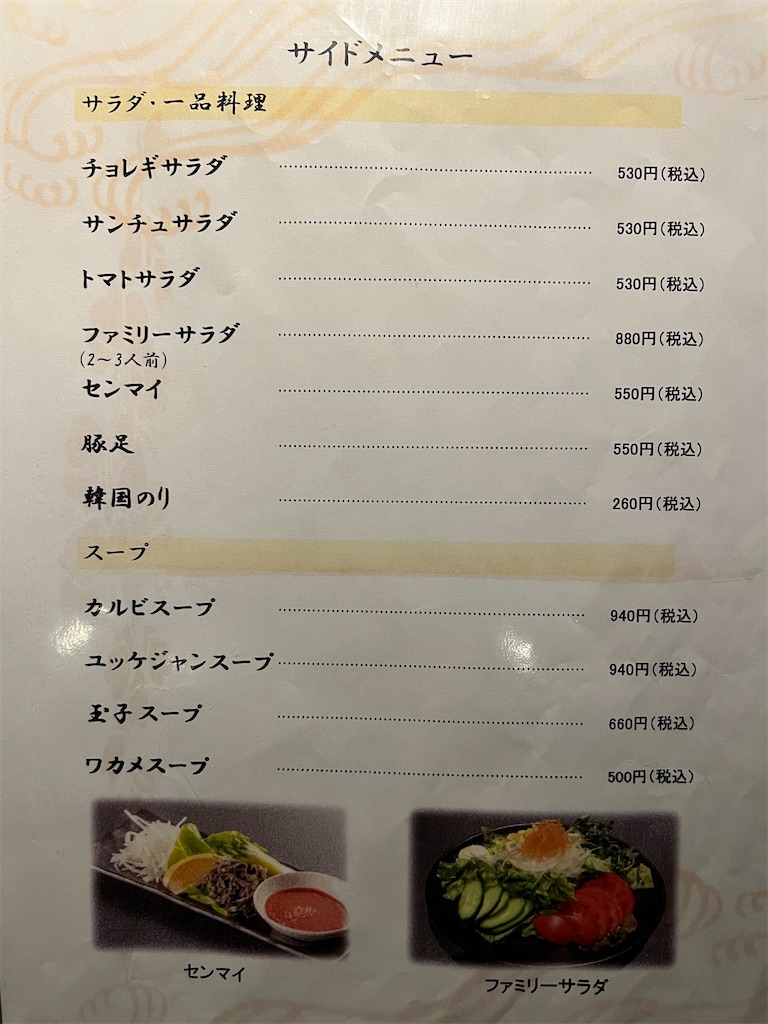 サイドメニュー
サラダ・一品料理
チョレギサラダ ………… 530円(税込)
サンチュサラダ ………… 530円(税込)
トマトサラダ ………… 530円(税込)
ファミリーサラダ ………… 880円(税込)
(2～3人前)
センマイ ………… 550円(税込)
豚足 ………… 550円(税込)
韓国のり ………… 260円(税込)
スープ
カルビスープ ………… 940円(税込)
ユッケジャンスープ ………… 940円(税込)
玉子スープ ………… 660円(税込)
ワカメスープ ………… 500円(税込)
センマイ
ファミリーサラダ